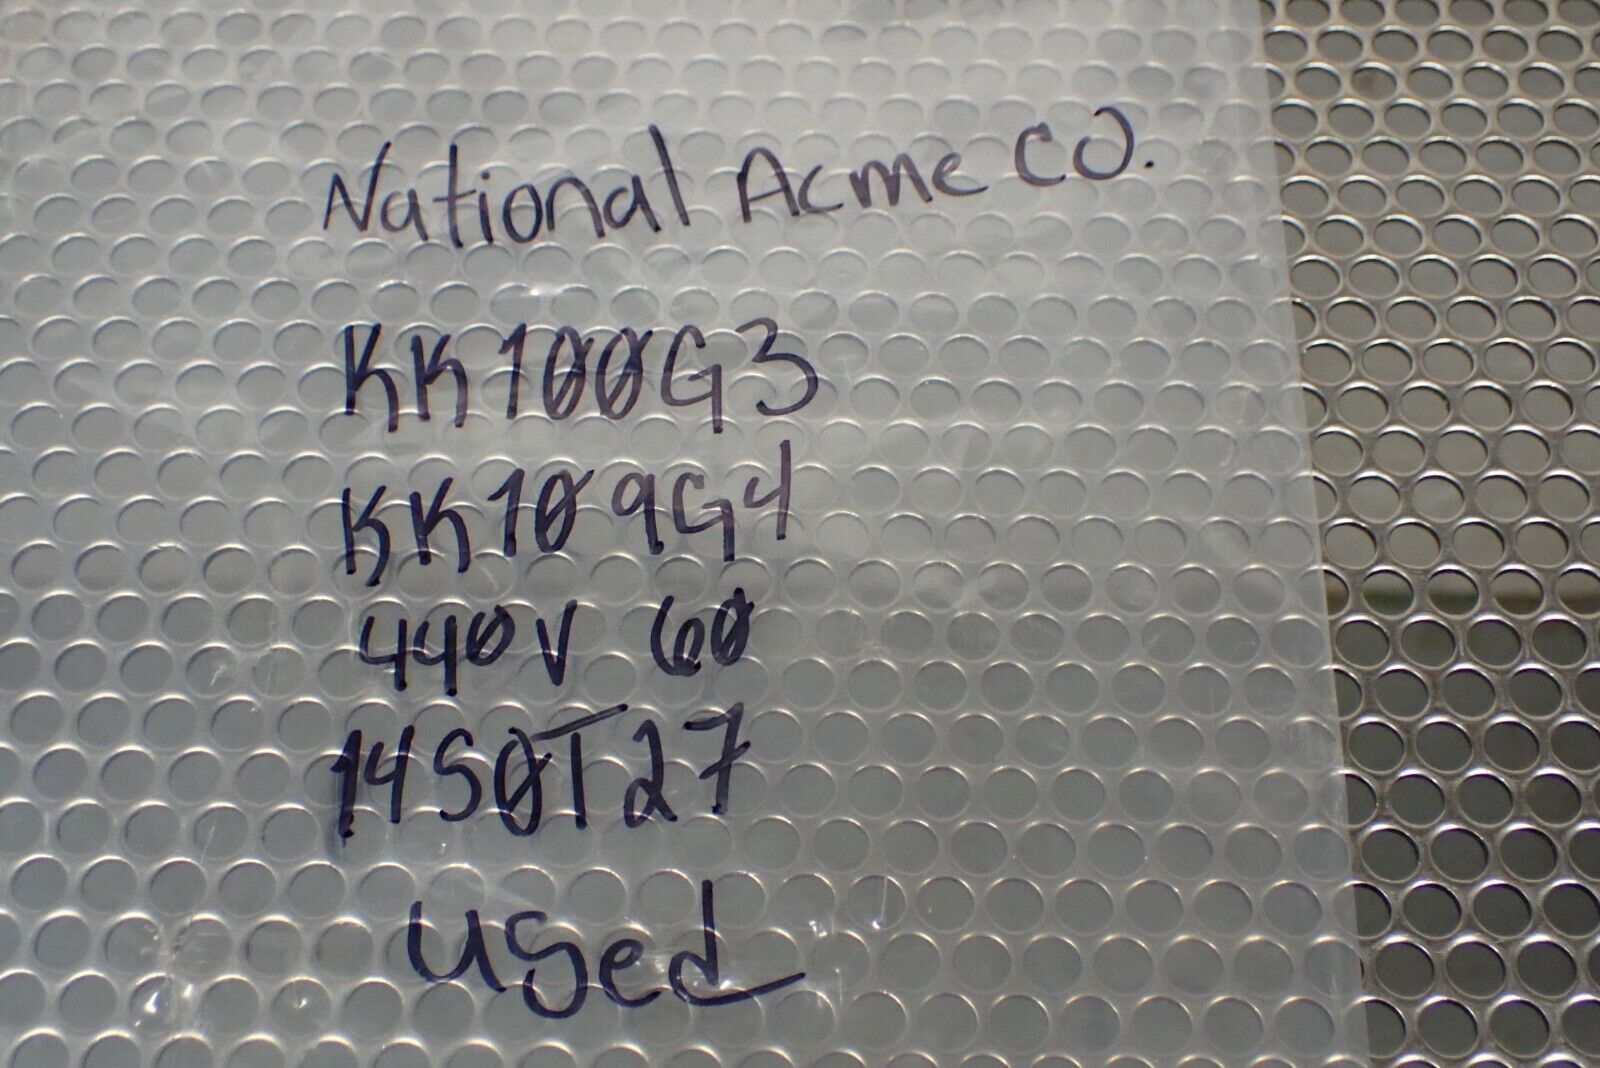 National Acme CO.
KK100G3
KK109G4
440V 60
14S0T27
Used